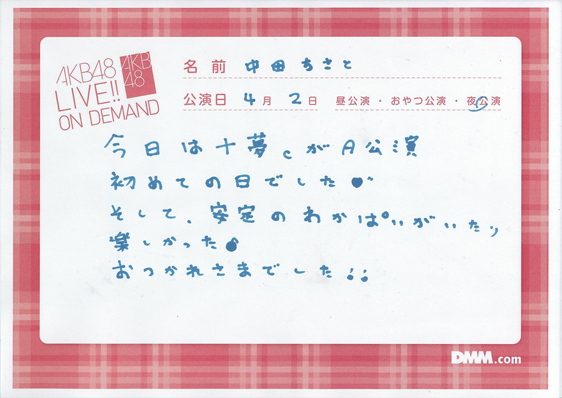 AKB48
LIVE!!
ON DEMAND
AKB
48
名前 中田ちさと
公演日 4月 2日 昼公演・おやつ公演・夜公演
今日は十夢cがA公演
初めての日でした♥
そして、安定のわかぱぃがいたり
楽しかった💣
おつかれさまでした!!
DMM.com